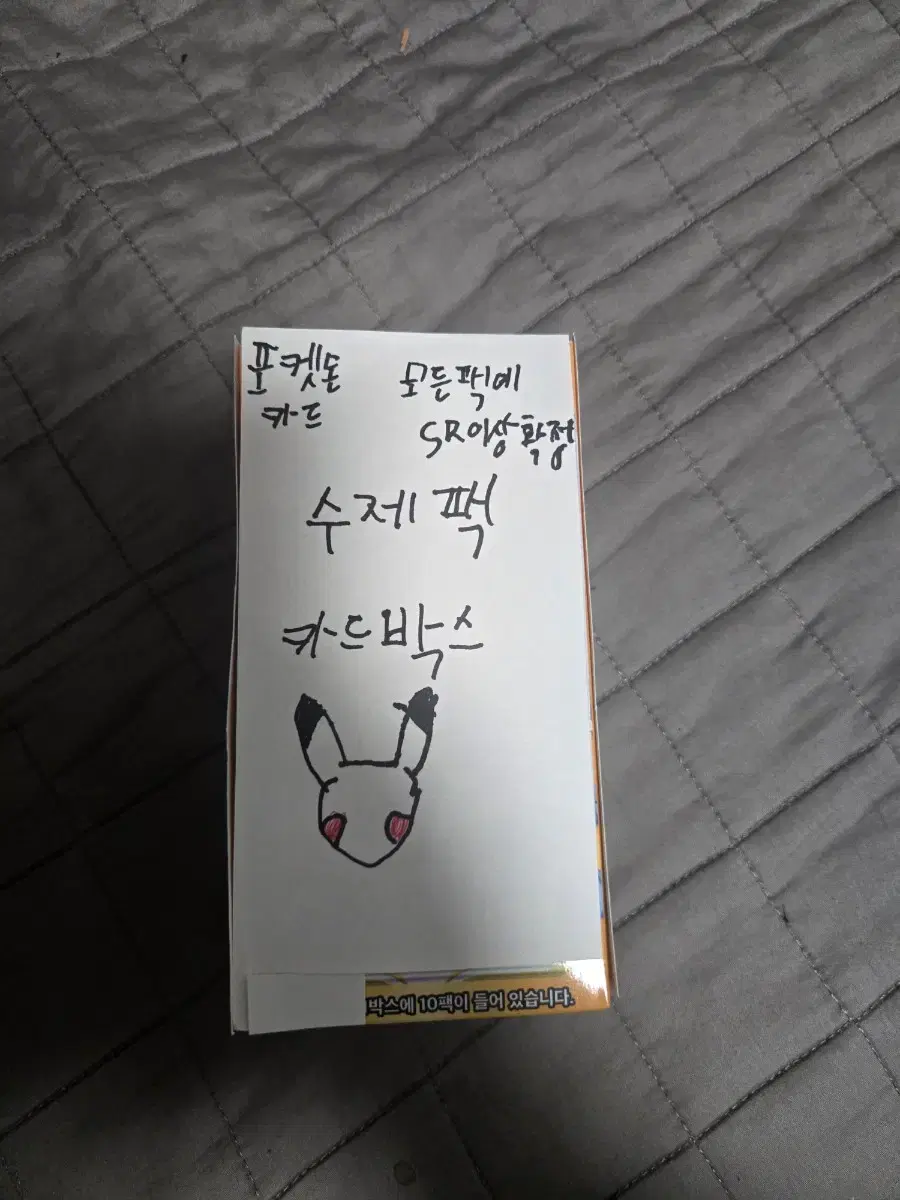 포켓몬
카드
모든팩에
SR이상 확정
수제 팩
카드박스
박스에 10팩이 들어 있습니다.